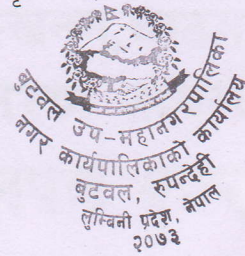 बुटवल उप-महानगरपालिका
नगर कार्यपालिकाको कार्यालय
बुटवल, रुपन्देही
लुम्बिनी प्रदेश, नेपाल
२०७३